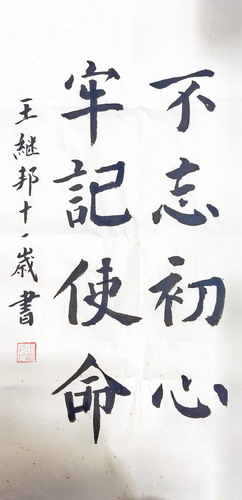 不忘初心
牢記使命
王繼邦十一歲書